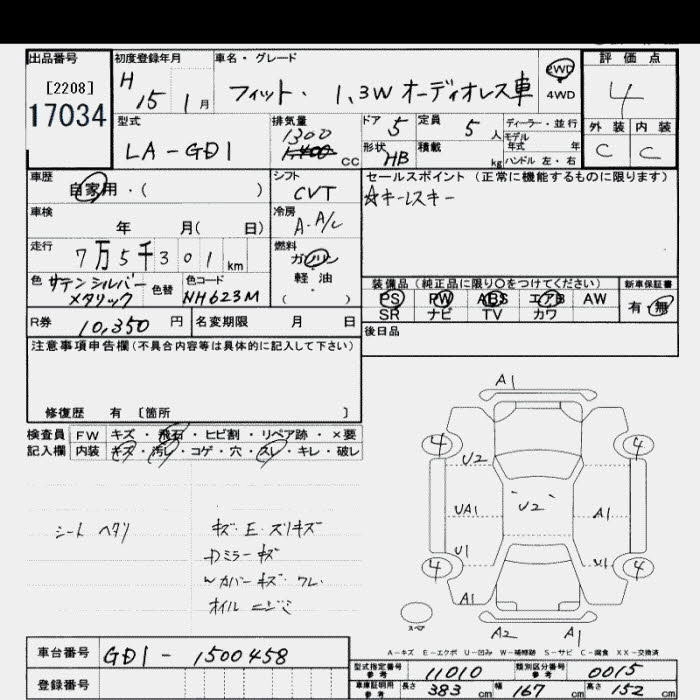 出品番号 初度登録年月 車名・グレード 評価点
[2208] H 15 1月 フィット. 1.3W オーディオレス車 2WD 4WD 4
17034
型式 排気量 ドア 5 定員 5人 ディーラー・並行 外装 内装
LA-GD1 1300 cc 形状 HB 積載 kg モデル年式 年 C C
ハンドル 左・右
車歴 シフト セールスポイント (正常に機能するものに限ります)
自家用・( ) CVT ☆キーレスキー
車検 冷房
年 月( 日) A.A/C
走行 燃料
7万5千301km ガソリン
色 サテンシルバーメタリック 色替 色コード NH623M 軽油
( )
装備品 (純正品に限り〇をつけてください) 新車保証書
PS PW ABS エアB AW 有・無
SR ナビ TV カワ
R券 10,350 円 名変期限 月 日 後日品
注意事項申告欄(不具合内容等は具体的に記入して下さい)
修復歴 有 〔箇所 〕
検査員 FW キズ・飛石・ヒビ割・リペア跡・×要
記入欄 内装 キズ・汚レ・コゲ・穴・スレ・キレ・破レ
シート ヘタリ キズ・E・スリキズ
Dミラーキズ
Wカバーキズ・ワレ
オイルニジミ
A1
4 4
U2
UA1 U2 A1
U1 U1
4 4
A1
スペア
A2 A1
A-キズ E-エクボ U-凹み W-補修跡 S-サビ C-腐食 XX-交換済
車台番号 GD1-1500458
登録番号
型式指定番号 参考 11010 類別区分番号 参考 0015
車庫証明用 参考 長さ 383 cm 幅 167 cm 高さ 152 cm